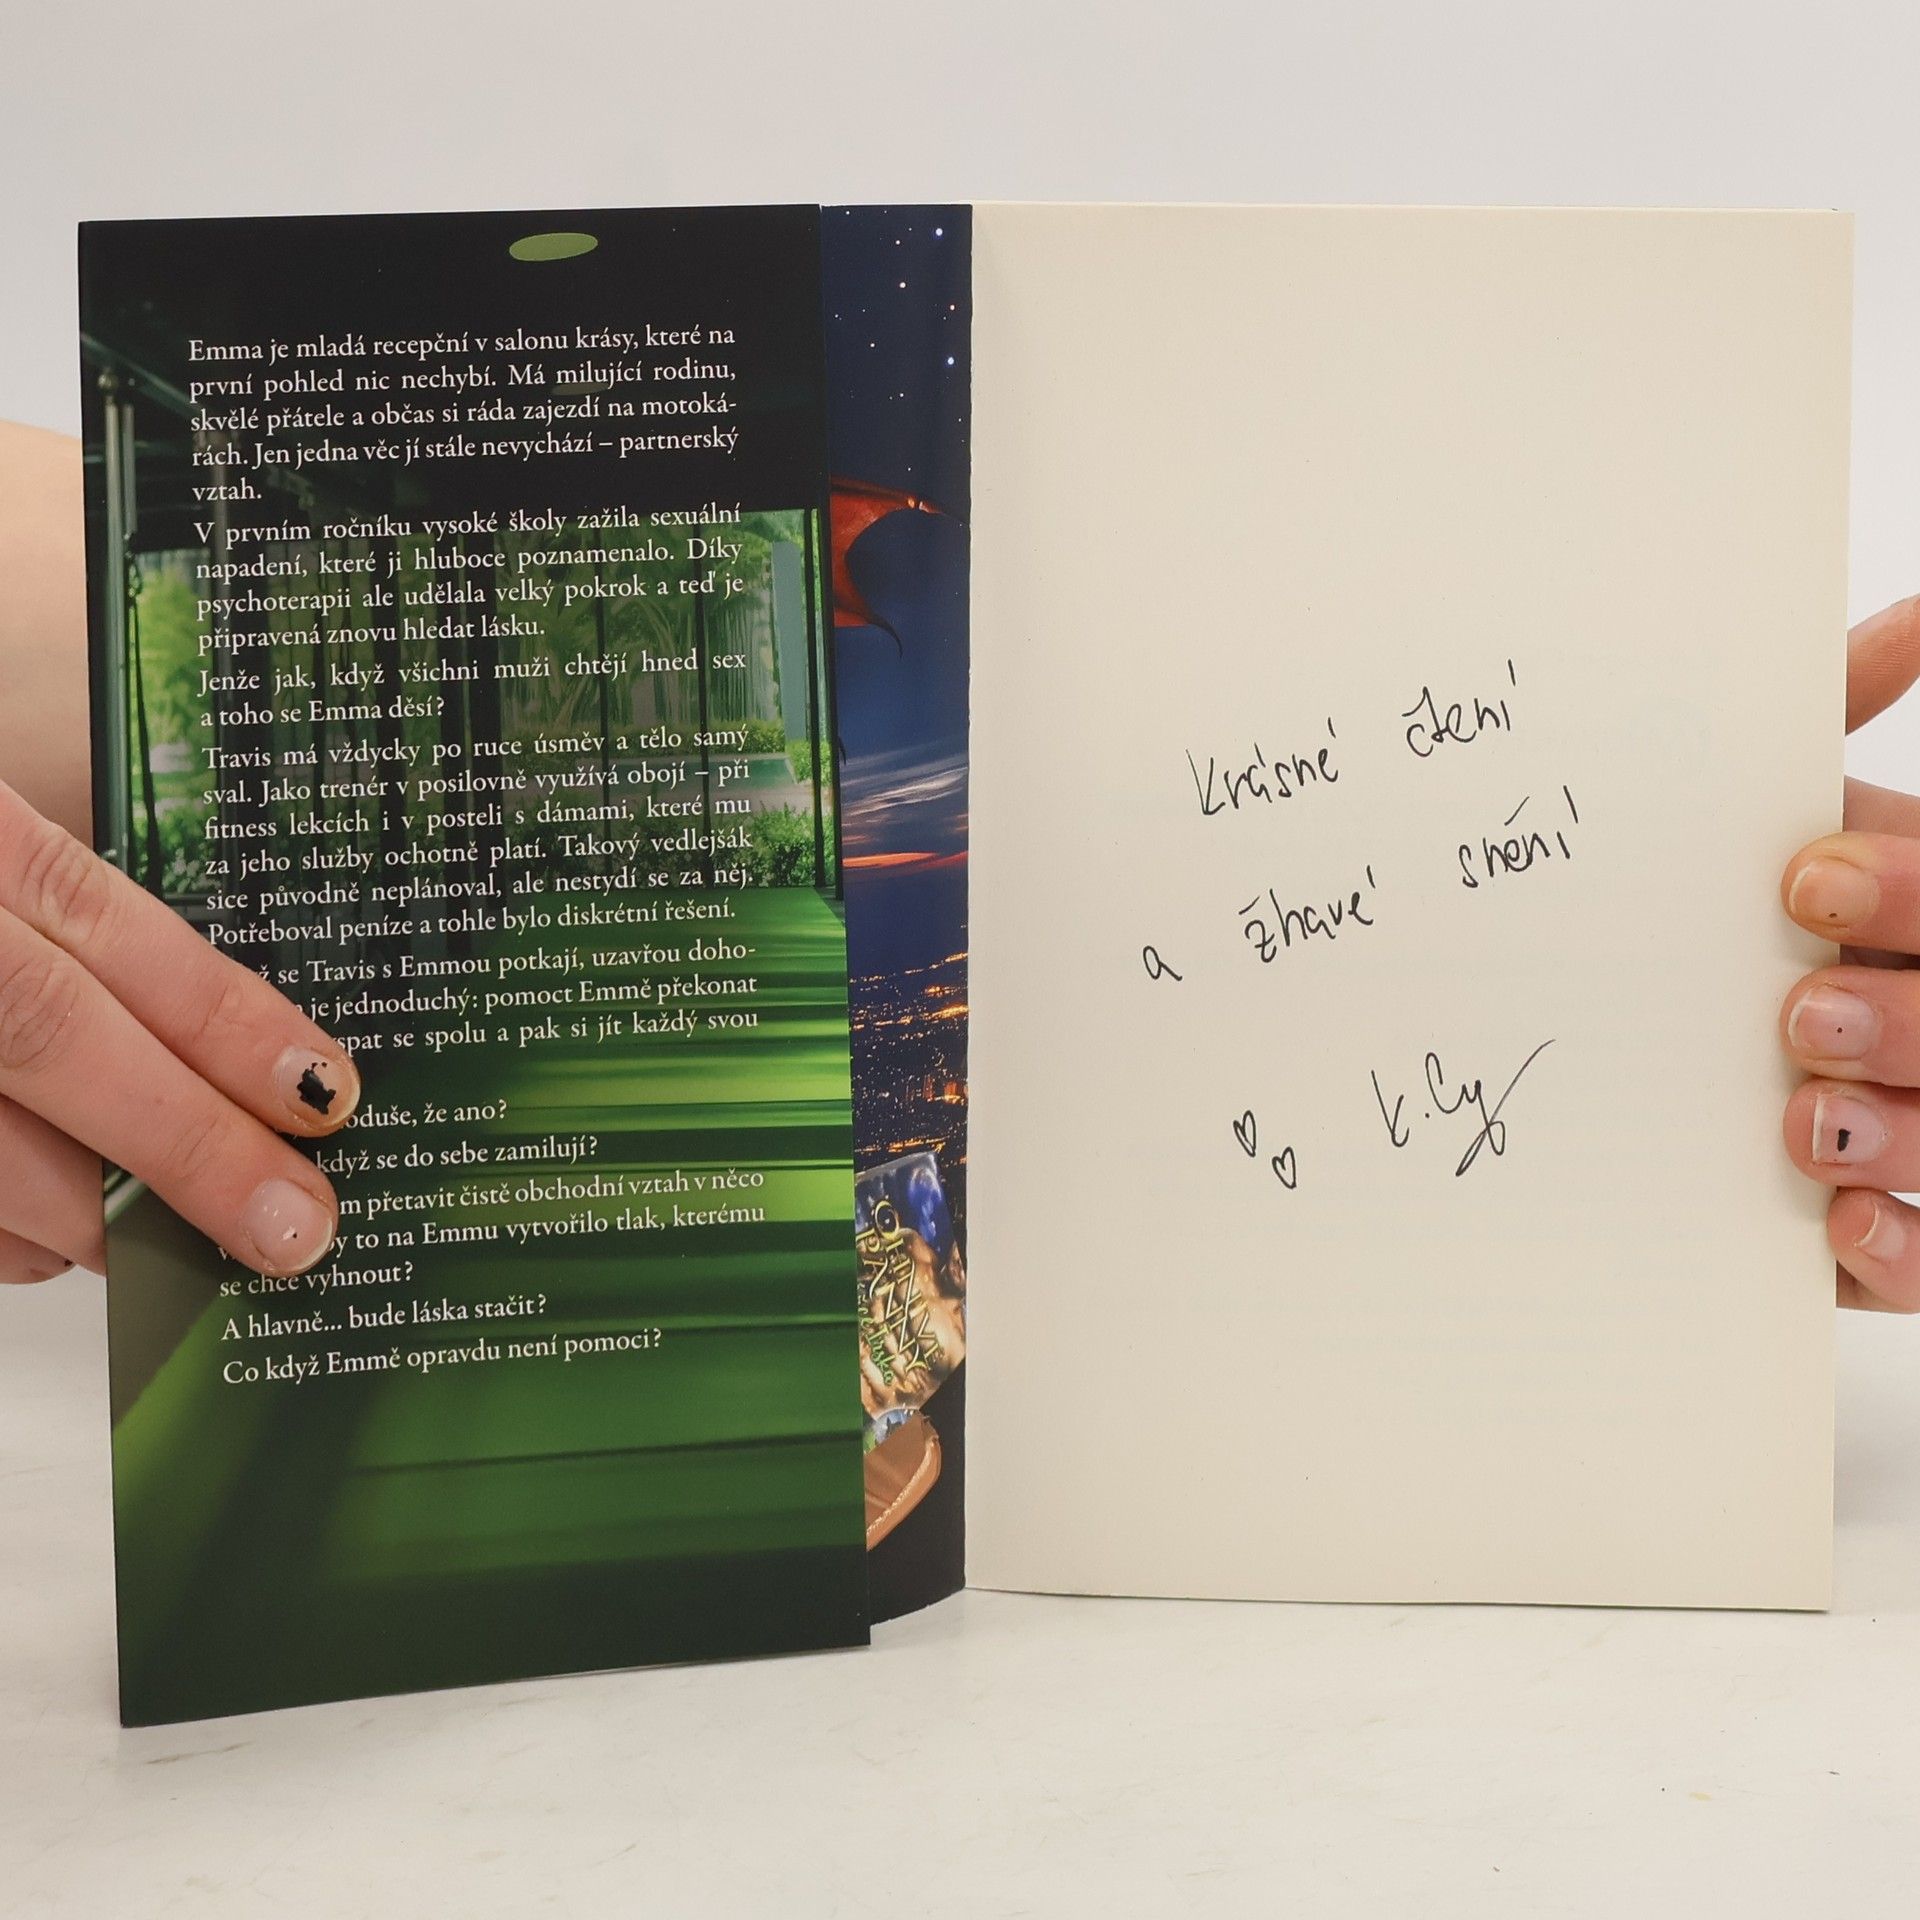 Emma je mladá recepční v salonu krásy, které na
první pohled nic nechybí. Má milující rodinu,
skvělé přátele a občas si ráda zajezdí na motoká-
rách. Jen jedna věc jí stále nevychází – partnerský
vztah.
V prvním ročníku vysoké školy zažila sexuální
napadení, které ji hluboce poznamenalo. Díky
psychoterapii ale udělala velký pokrok a teď je
připravená znovu hledat lásku.
Jenže jak, když všichni muži chtějí hned sex
a toho se Emma děsí?
Travis má vždycky po ruce úsměv a tělo samý
sval. Jako trenér v posilovně využívá obojí – při
fitness lekcích i v posteli s dámami, které mu
za jeho služby ochotně platí. Takový vedlejšák
sice původně neplánoval, ale nestydí se za něj.
Potřeboval peníze a tohle bylo diskrétní řešení.
se Travis s Emmou potkají, uzavřou doho-
je jednoduchý: pomoct Emmě překonat
spat se spolu a pak si jít každý svou
oduše, že ano?
když se do sebe zamilují?
m přetavit čistě obchodní vztah v něco
y to na Emmu vytvořilo tlak, kterému
se chce vyhnout?
A hlavně... bude láska stačit?
Co když Emmě opravdu není pomoci?
OHNIVÉ
PANNY
Krásné čtení
a žhavé snění
K. Cy